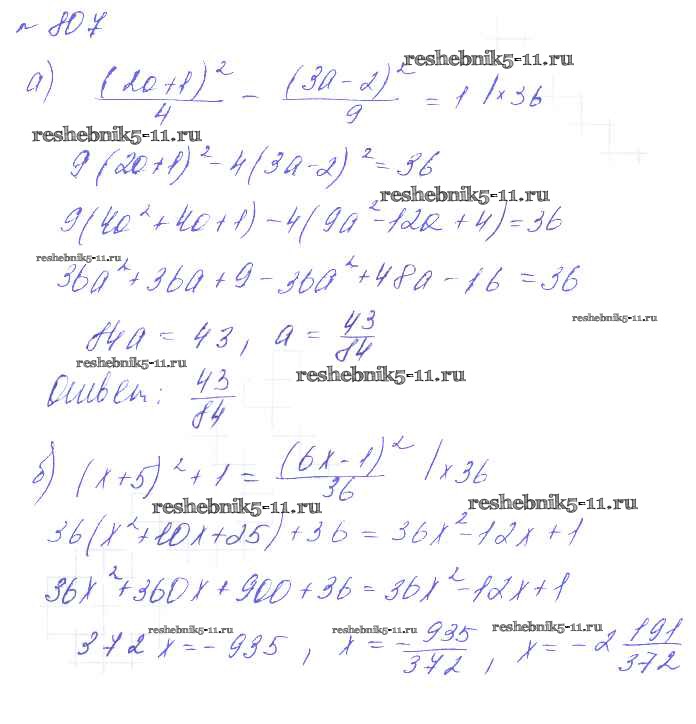 № 807
reshebnik5-11.ru
а) (2a+1)²/4 - (3a-2)²/9 = 1 |×36
reshebnik5-11.ru
9(2a+1)² - 4(3a-2)² = 36
reshebnik5-11.ru
9(4a²+4a+1) - 4(9a²-12a+4) = 36
reshebnik5-11.ru
36a²+36a+9-36a²+48a-16 = 36
reshebnik5-11.ru
84a = 43, a = 43/84
reshebnik5-11.ru
reshebnik5-11.ru
Ответ: 43/84
б) (x+5)²+1 = (6x-1)²/36 |×36
reshebnik5-11.ru
reshebnik5-11.ru
36(x²+10x+25)+36 = 36x²-12x+1
36x²+360x+900+36 = 36x²-12x+1
reshebnik5-11.ru
reshebnik5-11.ru
reshebnik5-11.ru
372x = -935, x = -935/372, x = -2 191/372